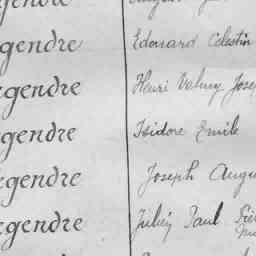 gendre Edouard Celestin
egendre Henri Valmy Jose
egendre Isidore Emile
egendre Joseph Augu
egendre Jules Paul